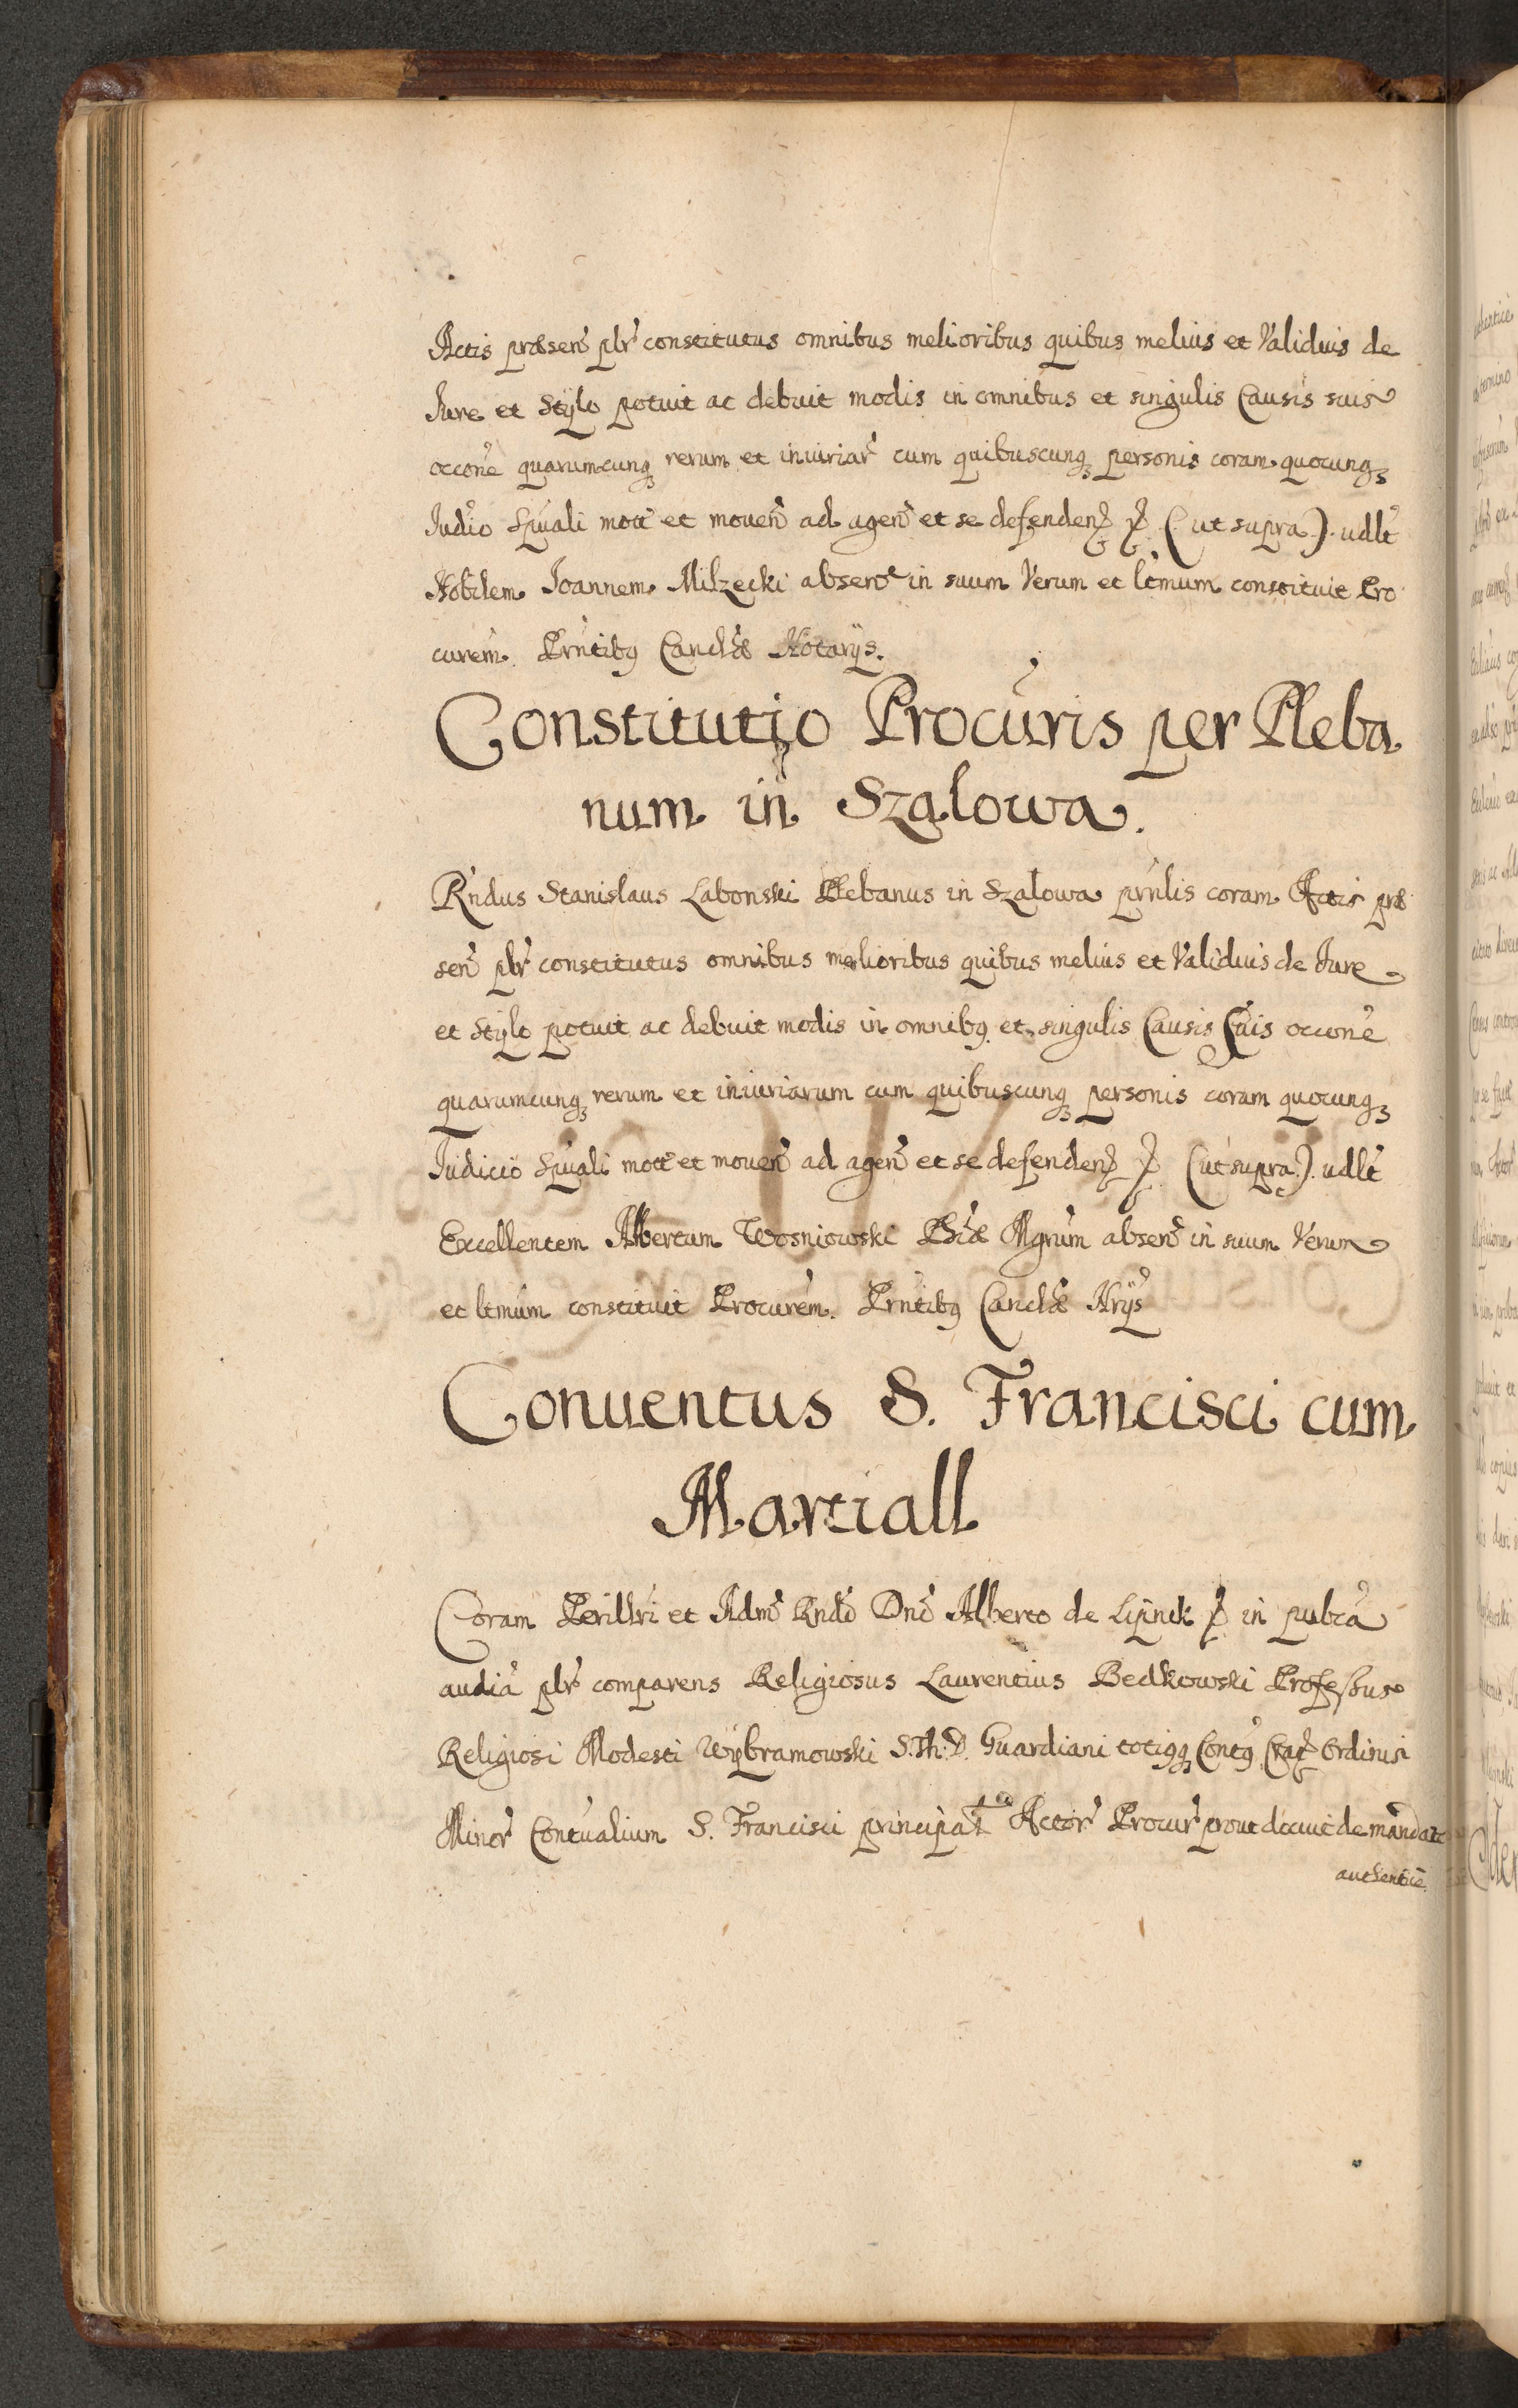 Actis præsen̄ plr̄ constitutus omnibus melioribus quibus melius et Validius de
Iure et Stÿlo potuit ac debuit modis in omnibus et singulis Causis suis
occōne quarumcunqꝫ rerum et iniuriar̄ cum quibuscunqꝫ personis coram quocunqꝫ
Iudīo Spūali mot̄ et mouen̄ ad agen̄ et se defenden̄ ꝑ (ut supra). udlt̄
Nobilem Ioannem Milzecki absen̄ in suum Verum et ltm̄um constituit Pro
curem̄. Prn̄tibꝰ Cancllæ Notarÿs.
Constitutio Procūris per Pleba
num in Szalowa.
Rn̄dus Stanislaus Labonski Plebanus in Szalowa prn̄lis coram Actis præ
sen̄ plr̄ constitutus omnibus melioribus quibus melius et Validius de Iure
et Stÿlo potuit ac debuit modis in omnibꝰ et singulis Causis Suis occōne
quarumcunqꝫ rerum et iniuriarum cum quibuscunqꝫ personis coram quocunqꝫ
Iudicio Spūali mot̄ et mouen̄ ad agen̄ et se defenden̄ ꝑ (ut supra). udlt̄
Excellentem Albertum Wosniowski Phiæ Mgrūm absen̄ in suum Verum
et ltm̄um constituit Procurem̄. Prn̄tibꝰ Cancllæ Nrÿs
Conuentus S. Francisci cum
Martiall
Coram Perillri et Admō Rndō Dnō Alberto de Lipnik ꝑ in publcā
audiā plr̄ comparens Religiosus Laurentius Bedkowski Professus
Religiosi Modesti Wÿbramowski S. Th: D. Guardiani totiqꝫ Contꝰ Frat̄ Ordinis
Minor̄ Contūalium S. Francisci principal Actor̄ Procur̄ prout docuit de mandato
authenticē